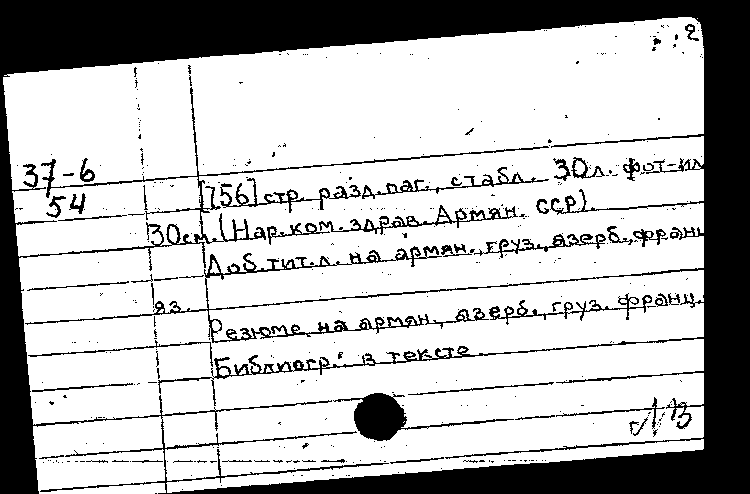 2
37-6
54
[756] стр. разд. паг., с табл. 30 л. фот-ил
30 см. (Нар. ком. здрав. Армян. ССР).
Доб. тит. л. на армян., груз., азерб., франц
яз.
Резюме на армян., азерб., груз. франц.
Библиогр. в тексте.